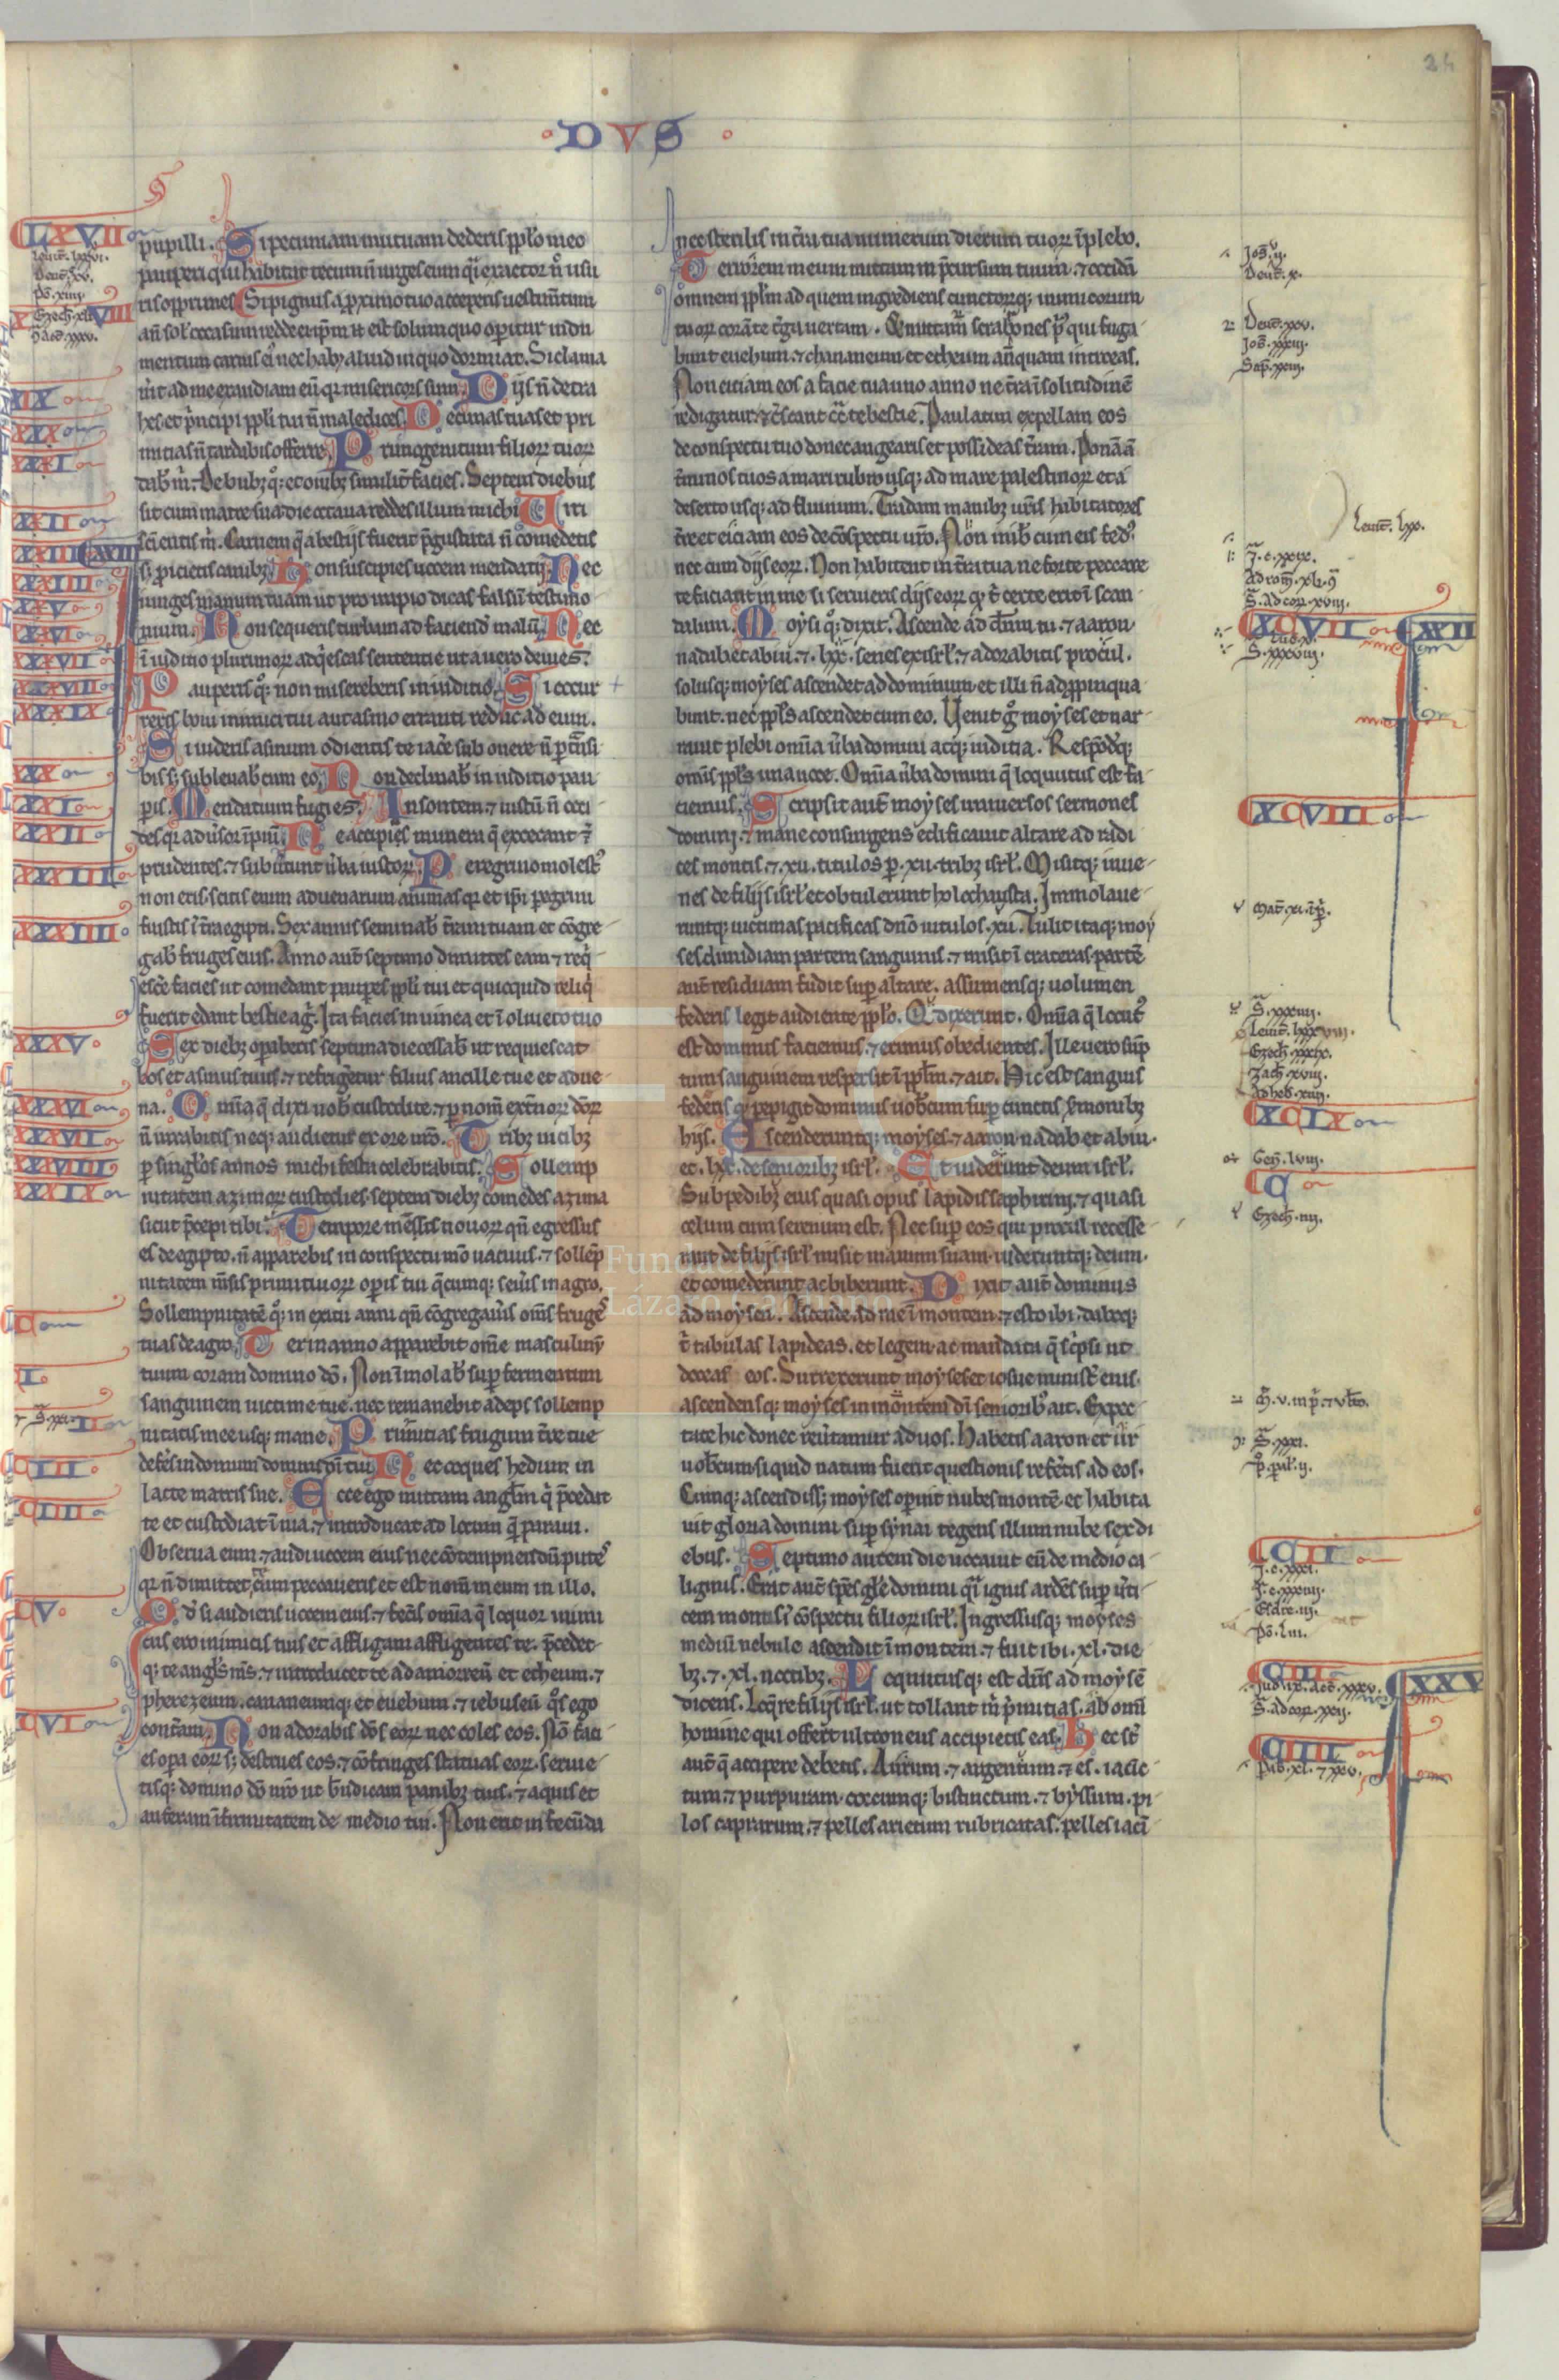 24
DVS
pupilli. Si pecuniam mutuam dederis pp̄lo meo
pauperi qui habitat tecum ñ urges eum q̄i exactor n̄ usu
ris opprimes. Si pignus a proximo tuo acceperis uestim̄tum
an̄ sol' occasum redde ei ip̄m .N. est solum quo operitur indu
mentum carnis ei' nec habꝫ aliud in quo dormiat. Si clama
u̓it ad me exaudiam eū q; misericors sum. Diis n̄ detra
hes et p̄ncipi pp̄li tui n̄ maledices. Decimas tuas et pri
mitias n̄ tardabis offerre. Primogenitum filioꝝ tuoꝝ
dab̓ m̓. De bubꝫ q̊; et ouibꝫ similit̓ facies. Septem diebus
sit cum matre sua: die octaua reddes illum michi. Uiri
sc̄i eritis m̓. Carnem q̄ a bestiis fuerit p̄gustata n̄ comedetis
sꝫ proicietis canibꝫ. Non suscipies uocem mendatij. Nec
iunges manum tuam ut pro impio dicas fals̄u testimo
nium. Non sequeris turbam ad faciend̓ malū. Nec
ī iuditio plurimoꝝ adq̓escas sententie ut a uero deuies.
Pauperis q̊; non misereberis in iuditio. Si occur
reris boui inimici tui aut asino erranti reduc ad eum.
Si uideris asinum odientis te iac̓e sub onere n̄ p̄transi
bis sꝫ subleuab̓ cum eo. Non declinab̓ in iuditio pau
peris. Mendatium fugies. Insontem ⁊ iustū n̄ occi
des q; aduersor īpiū. Ne accipies munera q̄ excecant ⁊
prudentes. ⁊ subuertunt u̓ba iustoꝝ. Peregrino molest'
non eris. scitis enim aduenarum animas q; et ip̄i peregrini
fuistis ī terra egipti. Sex annis seminab̓ terram tuam et cōgre
gab̓ fruges eius. Anno aut̄ septimo dimittes eam ⁊ req̓
esc̓e facies ut comedant pauperes pp̄li tui et quicquid reliq̓
fuerit edant bestie ag̓. Ita facies in uinea et ī oliueto tuo
Sex diebꝫ operaberis septima die cessab̓ ut requiescat
bos et asinus tuus. ⁊ refrigeretur filius ancille tue et adue
na. Omnia q̄ dixi uob̓ custodite. ⁊ p̄ nom̄ ext̓noꝝ deoꝝ
n̄ iurabitis neq; audietur ex ore ur̄o. Tribꝫ uicibꝫ
per singl'os annos michi festa celebrabitis. Sollemp
nitatem azimoꝝ custodies. septem diebꝫ comedes azima
sicut p̄cepi tibi. Tempore mēsis nouoꝝ qn̄ egressus
es de egipto. n̄ apparebis in conspectu meo uacuus. ⁊ sollēp
nitatem messis primitiuoꝝ operis tui q̄cumq; seueris in agro.
Sollempnitatē q̊; in exitu anni qn̄ cōgregaueris om̄s fruges
tuas de agro. Ter in anno apparebit om̄e masculinū
tuum coram domino dō. Non īmolab̓ super fermentum
sanguinem uictime tue. nec remanebit adeps sollemp
nitatis mee usq; mane. Primitias frugum terre tue
deferes in domum domini dī tui. Nec coques hedum in
lacte matris sue. Ecce ego mittam angl'm q̓ p̄cedat
te et custodiat ī uia. ⁊ introducat ad locum q̄ paraui.
Obserua eum. ⁊ audi uocem eius nec cōtempnendū putes
q; n̄ dimittet cum peccaueris et est nom̄ meum in illo.
Qd̓ si audieris uocem eius. ⁊ fec̓is omnia q̄ loquor inimi
cus ero inimicis tuis et affligam affligentes te. p̄cedet
q; te angl's m̄s. ⁊ introducet te ad amorreū et etheum. ⁊
pherezeum. cananeumq; et euehum. ⁊ iebuseū q̊s ego
conteram. Non adorabis deos eoꝝ nec coles eos. Nō faci
es opera eoꝝ sꝫ destrues eos. ⁊ cōfringes statuas eoꝝ. seruie
tisq; domino dō ur̄o ut b̄ndicam panibꝫ tuis. ⁊ aquis et
auferam īfirmitatem de medio tui. Non erit infecūda
nec sterilis in terra tua numerum dierum tuoꝝ īplebo.
Terrorem meum mittam in p̄cursum tuum. ⁊ occidā
omnem pp̄l'm ad quem ingredieris cunctoꝝq; inimicorum
tuoꝝ coram te terga uertam. Emittam scrabrones p̄us qui fuga
bunt euehum. ⁊ chananeum et etheum an̄quam introeas.
Non eiciam eos a facie tua uno anno ne terra ī solitudinē
redigatur. ⁊ c̓scant cont̓ te bestie. Paulatim expellam eos
de conspectu tuo donec augearis et possideas terram. Ponā a
terminos tuos a mari rubro usq; ad mare palestinoꝝ et a
deserto usq; ad fluuium. Tradam manibꝫ ur̄is habitatores
terre et eiciam eos de cōspectu ur̄o. Non inib̓ cum eis fed'
nec cum dijs eoꝝ. Non habitent in terra tua ne forte peccare
te faciant in me si seruieris dijs eoꝝ qd̓ t̓ certe erit ī scan
dalum. Moysi q̊; dixit. Ascende ad dn̄m tu. ⁊ aaron
nadab et abiu. ⁊ .lxx. senes ex isrl'. ⁊ adorabitis procul.
solusq; moyses ascendet ad dominum et illi n̄ adpropinqua
bunt. nec pp̄l's ascendet cum eo. Uenit g̊ moyses et nar
rauit plebi omnia u̓ba domini atq; iuditia. Respōditq;
omnis pp̄l's una uoce. Omnia u̓ba domini q̄ loquutus est fa
ciemus. Scripsit aut̄ moyses uniuersos sermones
domini. ⁊ mane consurgens edificauit altare ad radi
ces montis. ⁊ xii. titulos per .xii. tribꝫ isrl'. Misitq; iuue
nes de filijs isrl' et obtulerunt holochausta. Immolaue
runtq; uictimas pacificas dn̄o uitulos .xii. Tulit itaq; moy
ses dimidiam partem sanguinis. ⁊ misit ī crateras. partē
aut̄ residuam fudit super altare. assumensq; uolumen
federis legit audiente pp̄lo. Qui dixerunt. Omnia q̄ locut'
est dominus faciemus. ⁊ erimus obedientes. Ille uero sūp
tum sanguinem respersit ī pp̄l'm. ⁊ ait. Hic est sanguis
federis qd̓ pepigit dominus uobiscum super cunctis sermonibꝫ
hijs. Ascenderuntq; moyses. ⁊ aaron nadab et abiu.
et .lxx. de senioribꝫ isrl'. Et uiderunt deum isrl'.
Sub pedibꝫ eius quasi opus lapidis saphirini. ⁊ quasi
celum cum serenum est. Nec super eos qui procul recesse
rant de filijs isrl' misit manum suam. uideruntq; deum.
et comederunt ac biberunt. Dixit aut̄ dominus
ad moysen. Ascende ad me ī montem. ⁊ esto ibi. daboq;
t̓ tabulas lapideas. et legem. ac mandata q̄ sc̓psi ut
doceas eos. Surrexerunt moyses et iosue minist̓ eius.
ascendensq; moyses in montem dī seniorib' ait. Expec
tate hic donec reuertamur ad uos. Habetis aaron et ur
uobiscum. si quid natum fuerit questionis referetis ad eos.
Cumq; ascendissꝫ moyses operuit nubes montē. et habita
uit gloria domini super synai tegens illum nube sex di
ebus. Septimo autem die uocauit eū de medio ca
liginis. Erat aut̄ sp̄es gl'e domini q̄i ignis ardēs super u̓ti
cem montis ī cōspectu filioꝝ isrl'. Ingressusq; moyses
mediū nebule ascendit ī montem. ⁊ fuit ibi .xl. die
bꝫ. ⁊ .xl. noctibꝫ. Loquutusq; est dn̄s ad moysē
dicens. Loq̓re filijs isrl'. ut tollant m̓ p̓mitias. ab omī
homine qui offert ultroneus accipietis eas. Hec st̄
aut̄ q̄ accipere debetis. Aurum. ⁊ argentum. ⁊ es. iacic
tum. ⁊ purpuram. coccumq; bistinctum. ⁊ byssum. pi
los caprarum. ⁊ pelles arietum rubricatas. pelles iaci
XCVII
XVII
XCVIII
XCIX
C
CII
CIII
XXV
CIIII
Fundación
Lázaro Galdiano